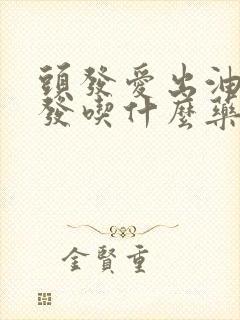 頭發愛出油
發喫什麼藥
金賢重